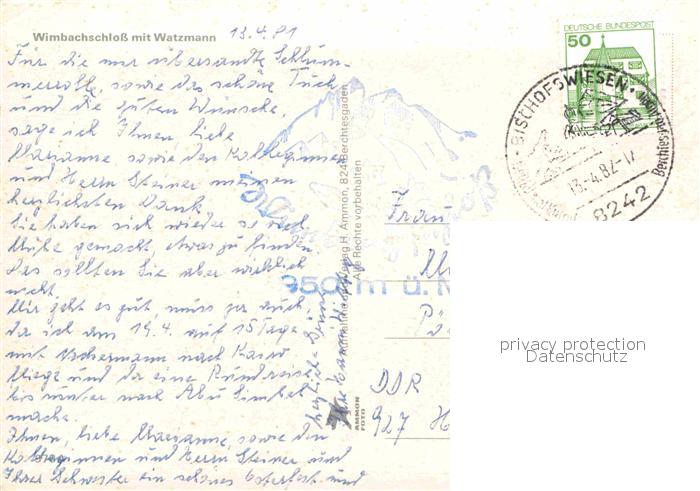 Wimbachschloß mit Watzmann
13.4.81
Für die mir übersandte Schlum-
merrolle, sowie das schöne Tuch
und die guten Wünsche,
sage ich Ihnen, liebe
Marianne, sowie den Kolleginnen
und Herrn Steiner meinen
herzlichsten Dank.
Sie haben sich wieder so viel
Mühe gemacht, etwas zu finden.
Das sollten Sie aber wirklich
nicht.
Mir geht es gut, muss ja auch,
da ich am 19.4. auf 15 Tage
mit Neckermann nach Kairo
fliege und da eine Rundreise
bis runter nach Abu Simbel
mache.
Ihnen, liebe Marianne, sowie den
Kolleginnen und Herrn Steiner und
Ihrer Schwester ein schönes Osterfest und
herzliche Grüße
Ihre
Verlag H. Ammon, 824 Berchtesgaden
Alle Rechte vorbehalten
AMMON
FOTO
950 m ü. N
DEUTSCHE BUNDESPOST
50
BISCHOFSWIESEN
13.-4.82-17
8242
Frau
DDR
927 H
privacy protection
Datenschutz